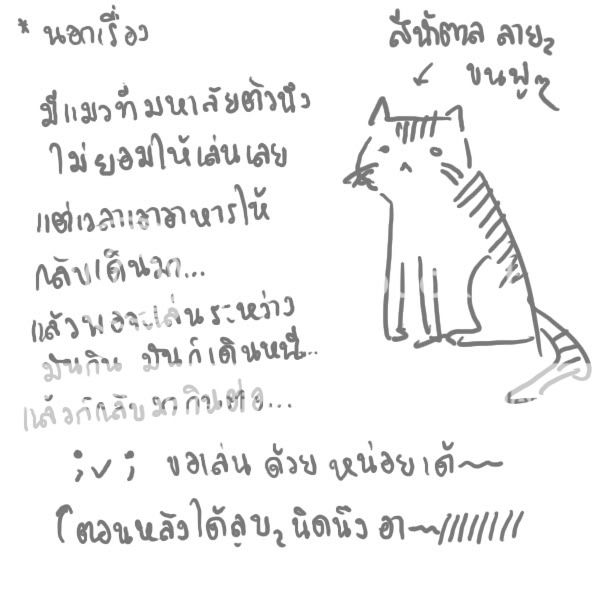 * นอกเรื่อง
สีน้ำตาล ลายๆ
ขนฟูๆ
มีแมวที่มหาลัยตัวนึง
ไม่ยอมให้เล่นเลย
แต่เวลาเอาอาหารให้
กลับเดินมา...
แล้วพอจะเล่นระหว่าง
มันกิน มันก็เดินหนี...
แล้วก็กลับมากินต่อ...
;v; ขอเล่นด้วยหน่อยเด้~
(ตอนหลังได้ลูบๆนิดนึง ฮา~/////////